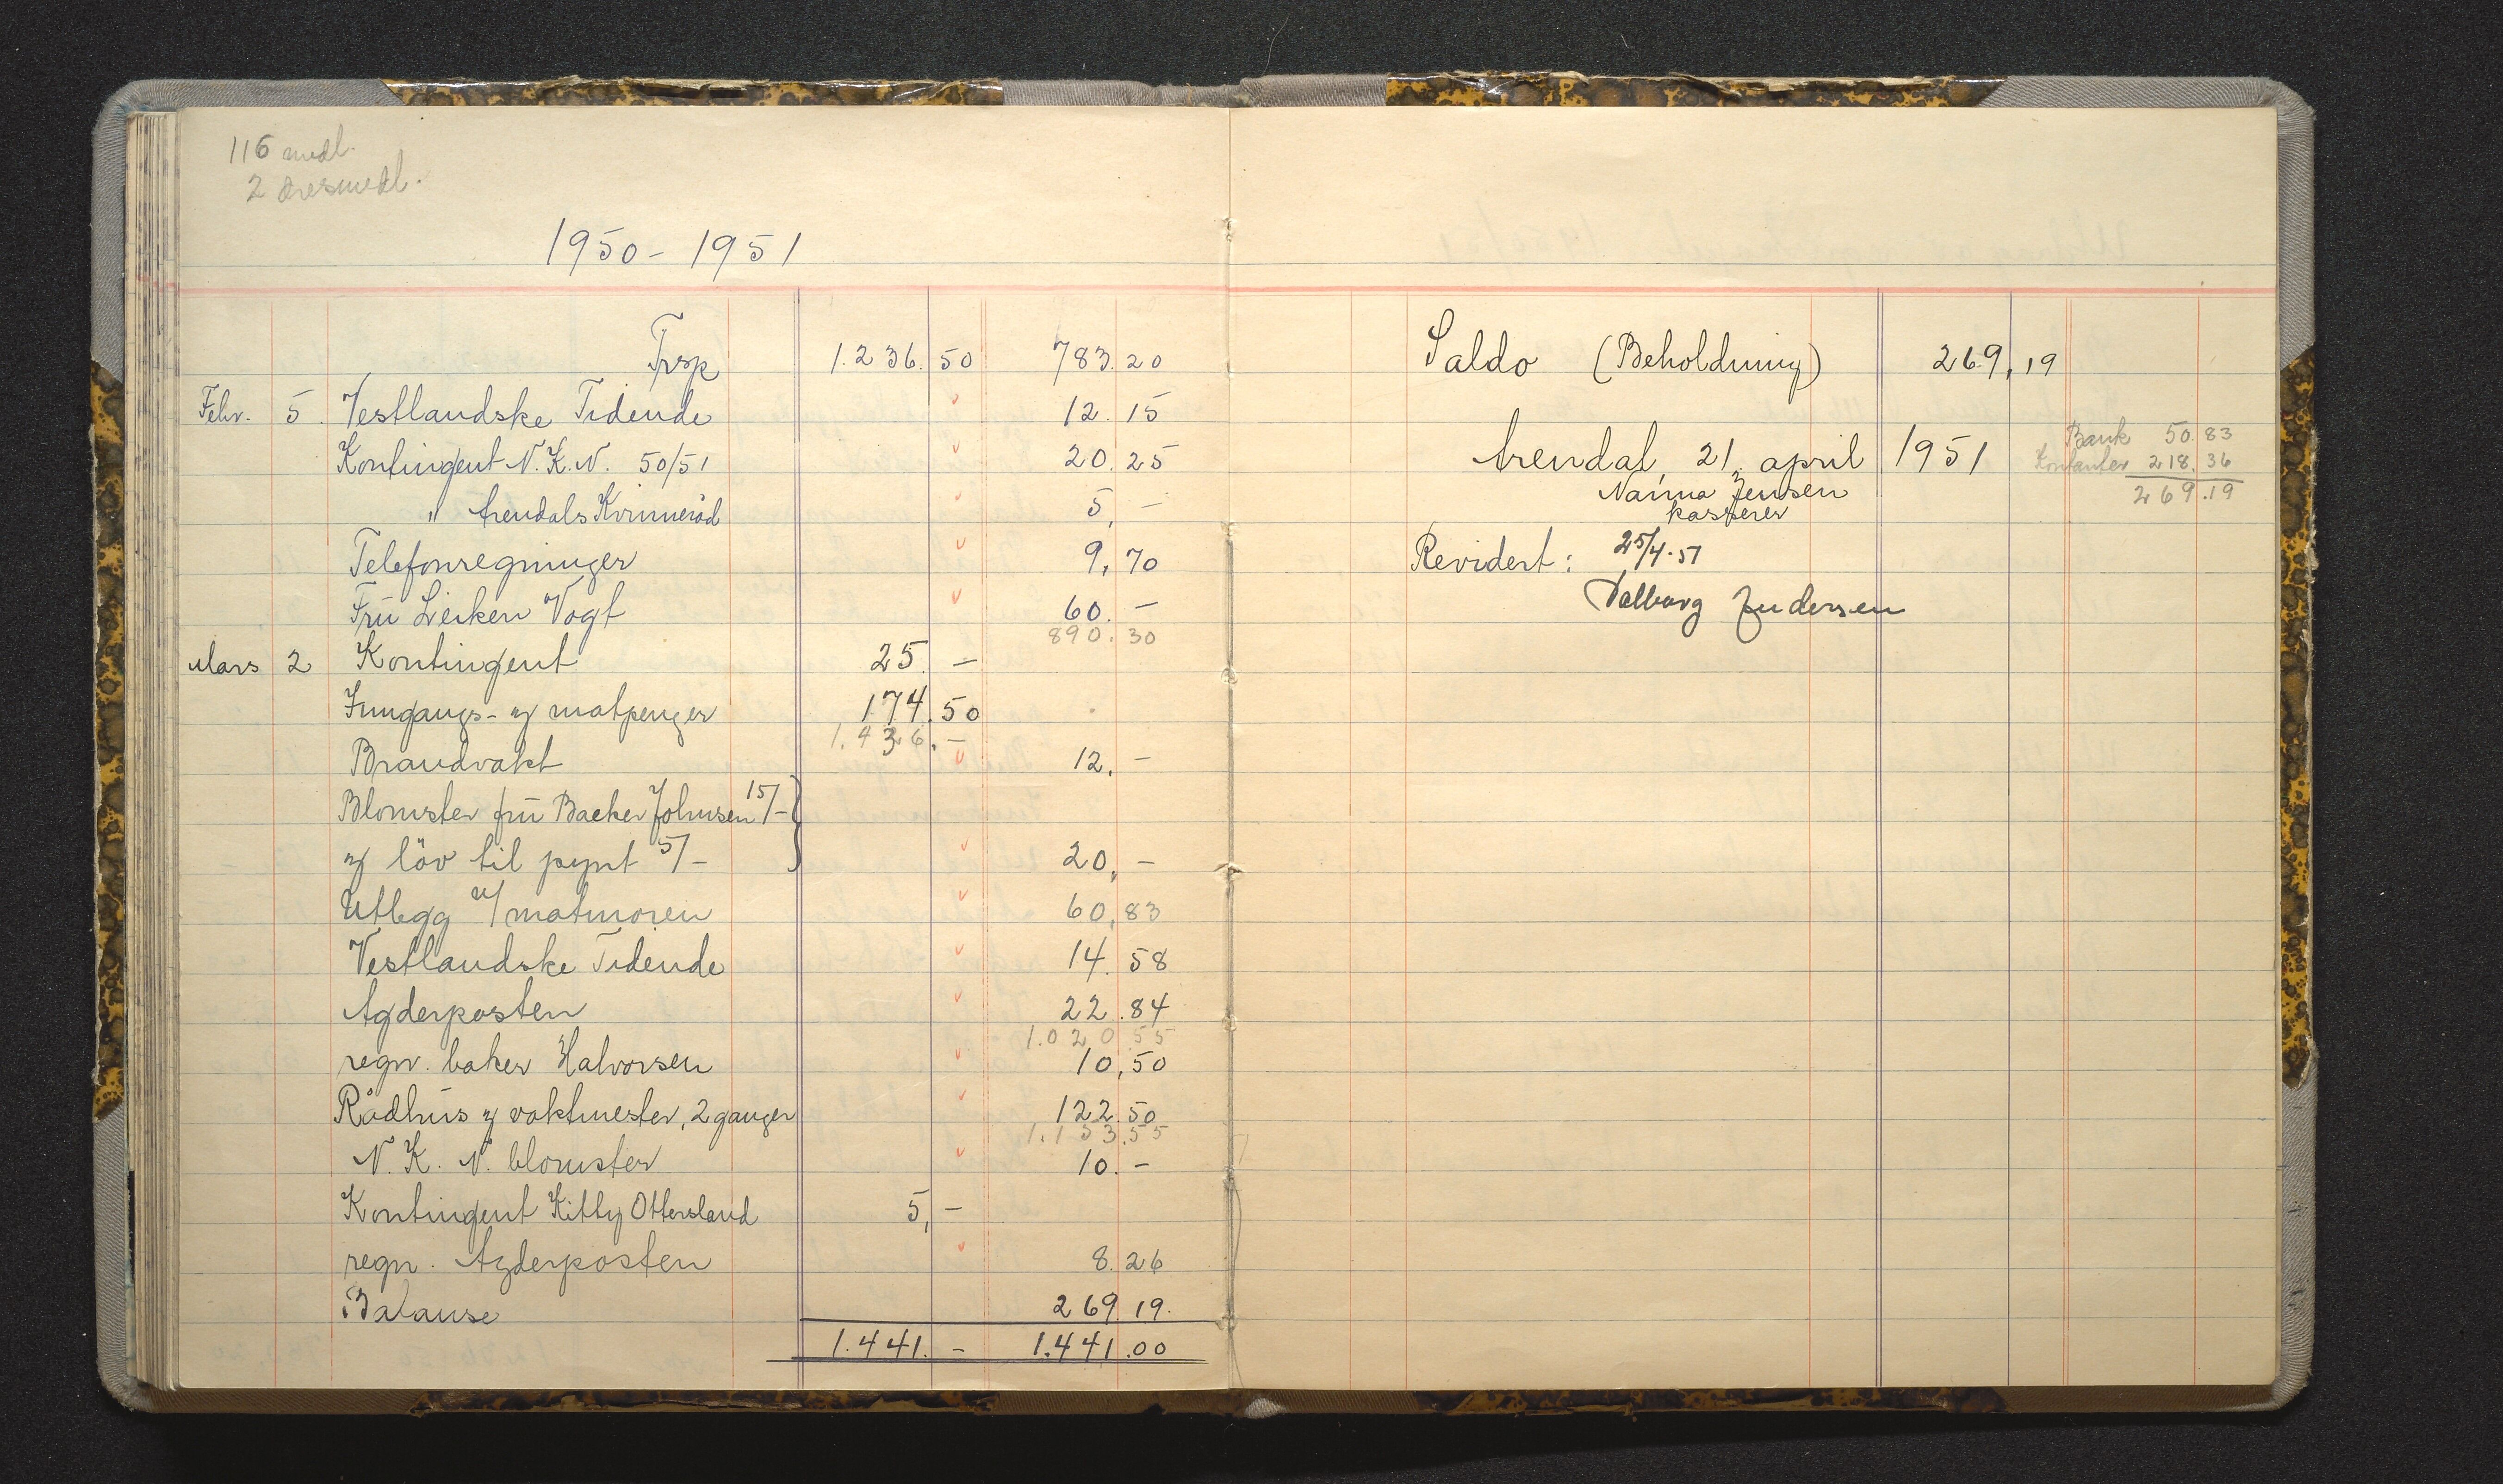 116 medl.
2 æresmedl.
1950 - 1951
Trsp 1.236.50 783.20
Febr. 5. Vestlandske Tidende 12.15
Kontingent N.K.N. 50/51 20.25
" Arendals Kvinneråd 5,-
Telefonregninger 9,70
Fru Leiken Vogt 60.-
890.30
Mars 2 Kontingent 25.-
Inngangs- og matpenger 174.50
1.436.-
Brandvakt 12.-
Blomster fru Backer Johnsen 15/-
og löv til pynt 5/- 20,-
Utlegg v/ matmoren 60.83
Vestlandske Tidende 14.58
Agderposten 22.84
1.020.55
regn. baker Halvorsen 10,50
Rådhus og vaktmester, 2 ganger 122.50
1.153.55
N.K.N. blomster 10.-
Kontingent Kitty Ottersland 5,-
regn. Agderposten 8.26
Balanse 269.19.
1.441.- 1.441.00
Saldo (Beholdning) 269,19
Arendal, 21. april 1951
Naima Jensen
kasserer
Bank 50.83
Kontanter 218.36
269.19
Revidert: 25/4-51
Valborg Andersen